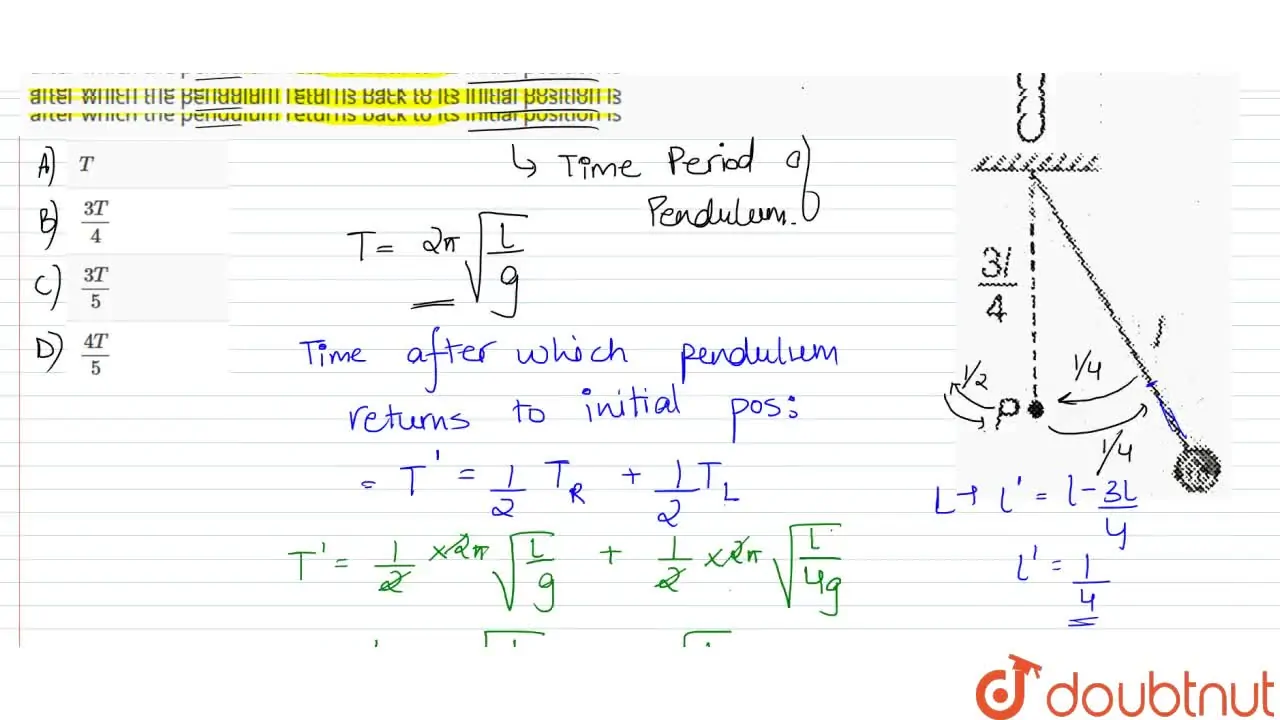 after which the pendulum returns back to its initial position is
after which the pendulum returns back to its initial position is
A) T
B) 3T/4
C) 3T/5
D) 4T/5
↳ Time Period of
Pendulum.
T = 2π √(l/g)
Time after which pendulum
returns to initial pos:
= T' = 1/2 T_R + 1/2 T_L
T' = 1/2 × 2π √(l/g) + 1/2 × 2π √(l/4g)
3l/4
l
1/2
1/4
P
1/4
L → l' = l - 3l/4
l' = l/4
doubtnut